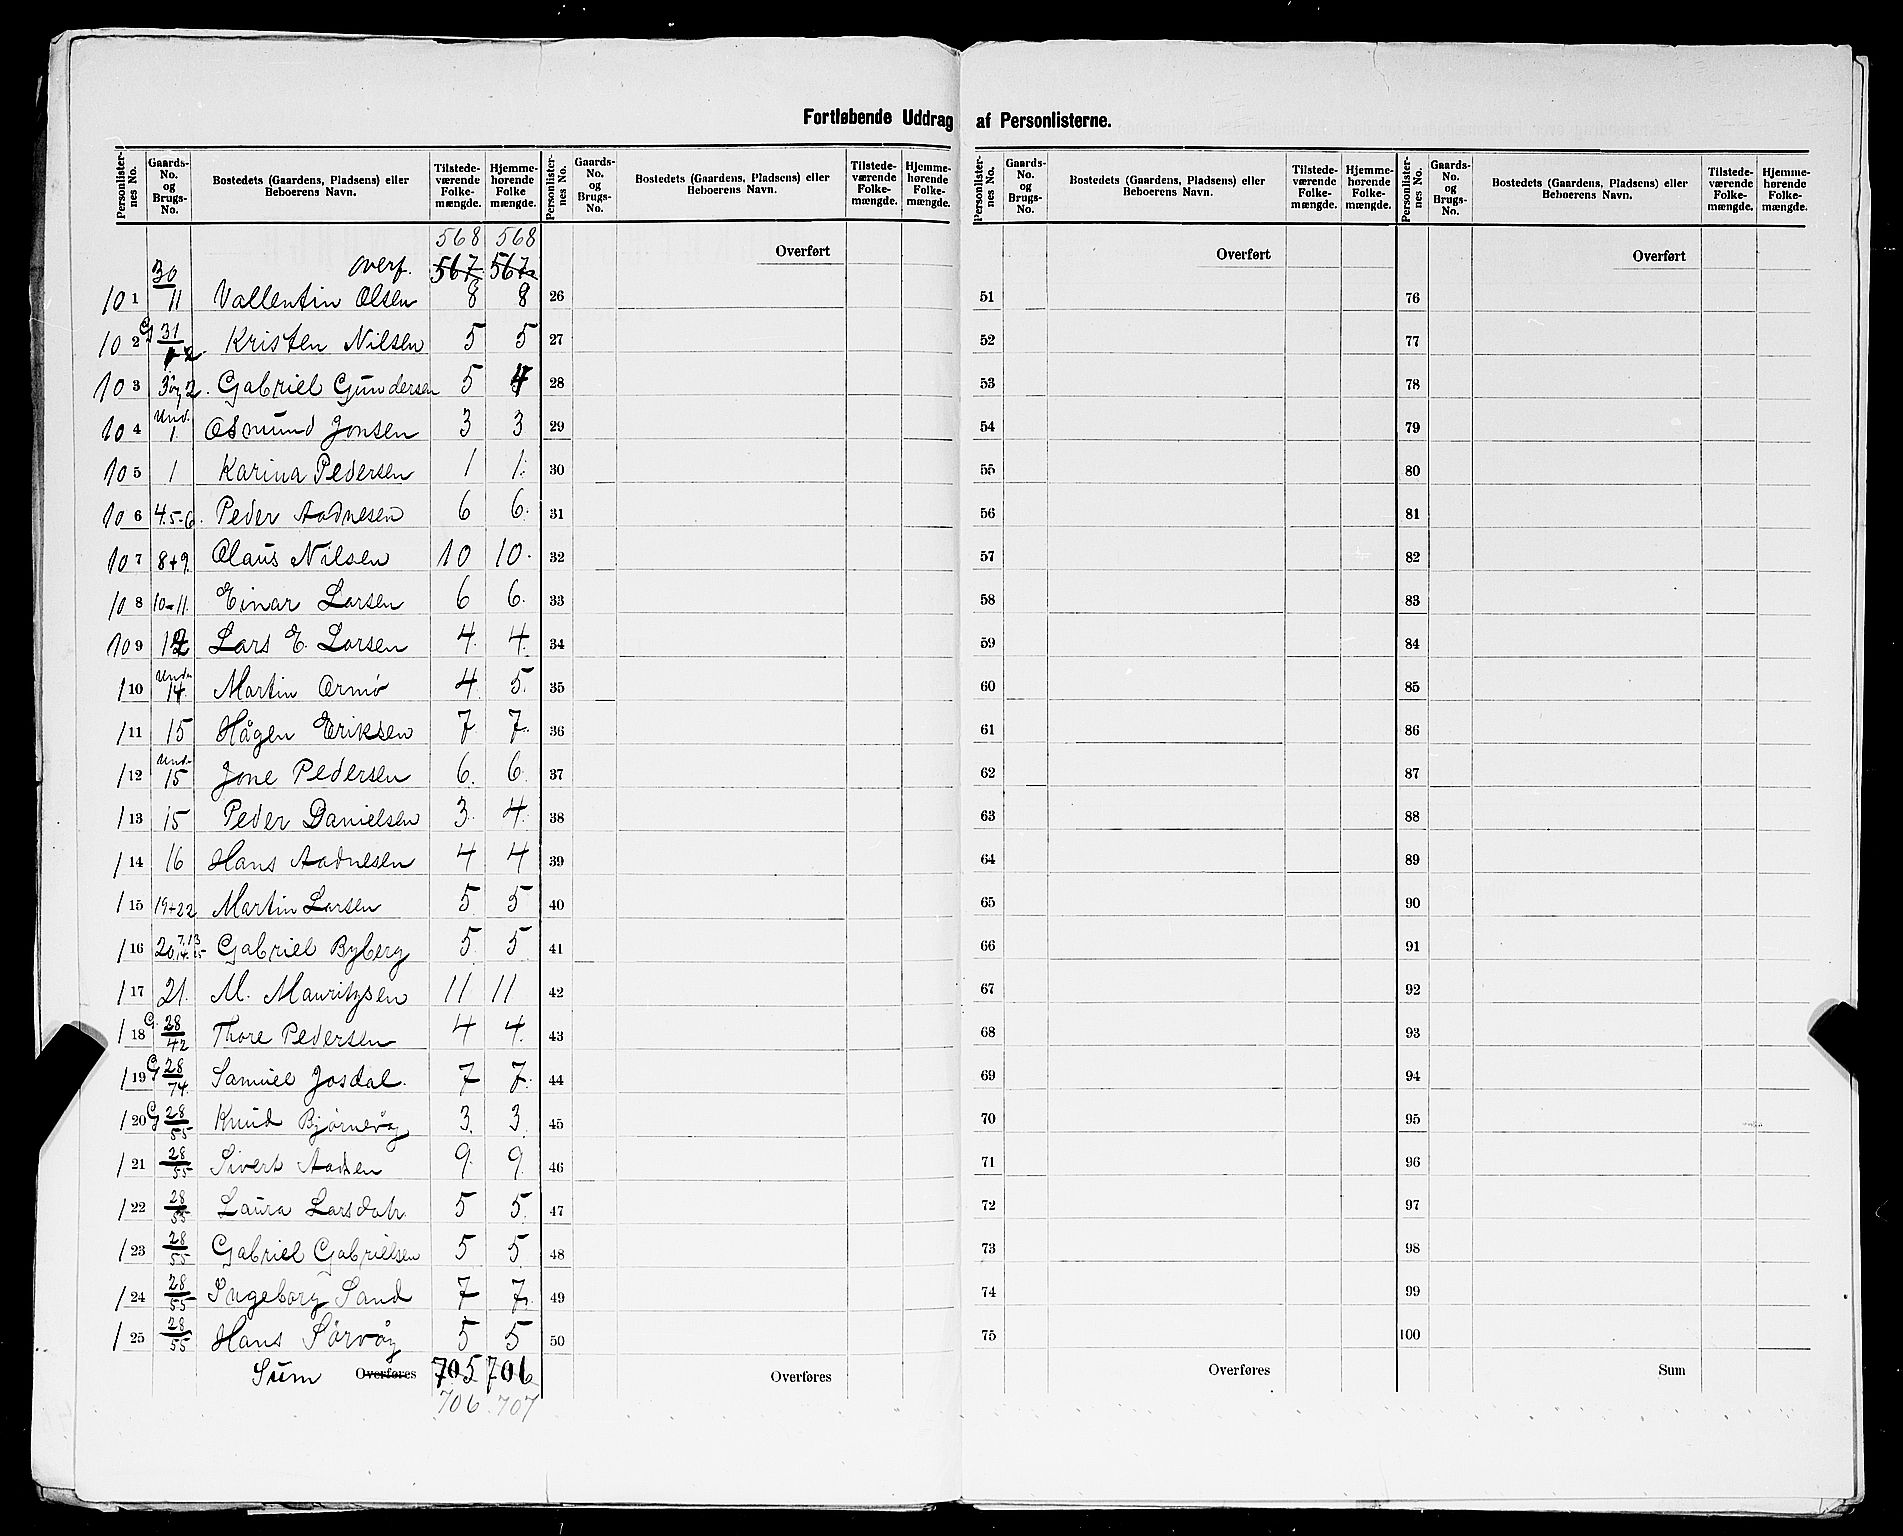 Fortløbende Uddrag af Personlisterne.
Personlister-nes No. | Gaards-No. og Brugs-No. | Bostedets (Gaardens, Pladsens) eller Beboerens Navn. | Tilstede-værende Folke-mængde. | Hjemme-hørende Folke mængde.
568 568
30 overf. 567 567
101 11 Vallentin Olsen 8 8
102 G 31/1-2. Kristen Nilsen 5 5
103 3 og 2. Gabriel Gundersen 5 4
104 Und. 1. Osmund Jonsen 3 3
105 1 Karina Pedersen 1 1.
106 4.5-6. Peder Aadnesen 6 6.
107 8+9. Olaus Nilsen 10 10.
108 10-11. Einar Larsen 6 6.
109 12 Lars E. Larsen 4. 4.
110 Und. 14. Martin Ormø 4. 5.
111 15 Hågen Eriksen 7. 7.
112 Und. 15 Jone Pedersen 6. 6.
113 15 Peder Danielsen 3. 4.
114 16 Hans Aadnesen 4 4
115 19+22 Martin Larsen 5. 5
116 20, 7.13 14. 25 Gabriel Byberg 5. 5
117 21. M. Mauritzsen 11 11
118 G. 28/42 Thore Pedersen 4 4.
119 G 28/74. Samuel Josdal. 7 7.
120 G 28/55 Knud Bjørnevåg 3. 3.
121 28/55 Sivert Aadsen 9. 9.
122 28/55 Laura Larsdatr. 5 5.
123 28/55 Gabriel Gabrielsen 5 5.
124 28/55 Ingeborg Sand 7 7.
125 28/55 Hans Sørvåg 5 5
Sum Overføres 705 706
706. 707
Personlister-nes No. | Gaards-No. og Brugs-No. | Bostedets (Gaardens, Pladsens) eller Beboerens Navn. | Tilstede-værende Folke-mængde. | Hjemme-hørende Folke-mængde.
Overført
26
27
28
29
30
31
32
33
34
35
36
37
38
39
40
41
42
43
44
45
46
47
48
49
50
Overføres
Personlister-nes No. | Gaards-No. og Brugs-No. | Bostedets (Gaardens, Pladsens) eller Beboerens Navn. | Tilstede-værende Folke-mængde. | Hjemme-hørende Folke-mængde.
Overført
51
52
53
54
55
56
57
58
59
60
61
62
63
64
65
66
67
68
69
70
71
72
73
74
75
Overføres
Personlister-nes No. | Gaards-No. og Brugs-No. | Bostedets (Gaardens, Pladsens) eller Beboerens Navn. | Tilstede-værende Folke-mængde. | Hjemme-hørende Folke-mængde.
Overført
76
77
78
79
80
81
82
83
84
85
86
87
88
89
90
91
92
93
94
95
96
97
98
99
100
Sum